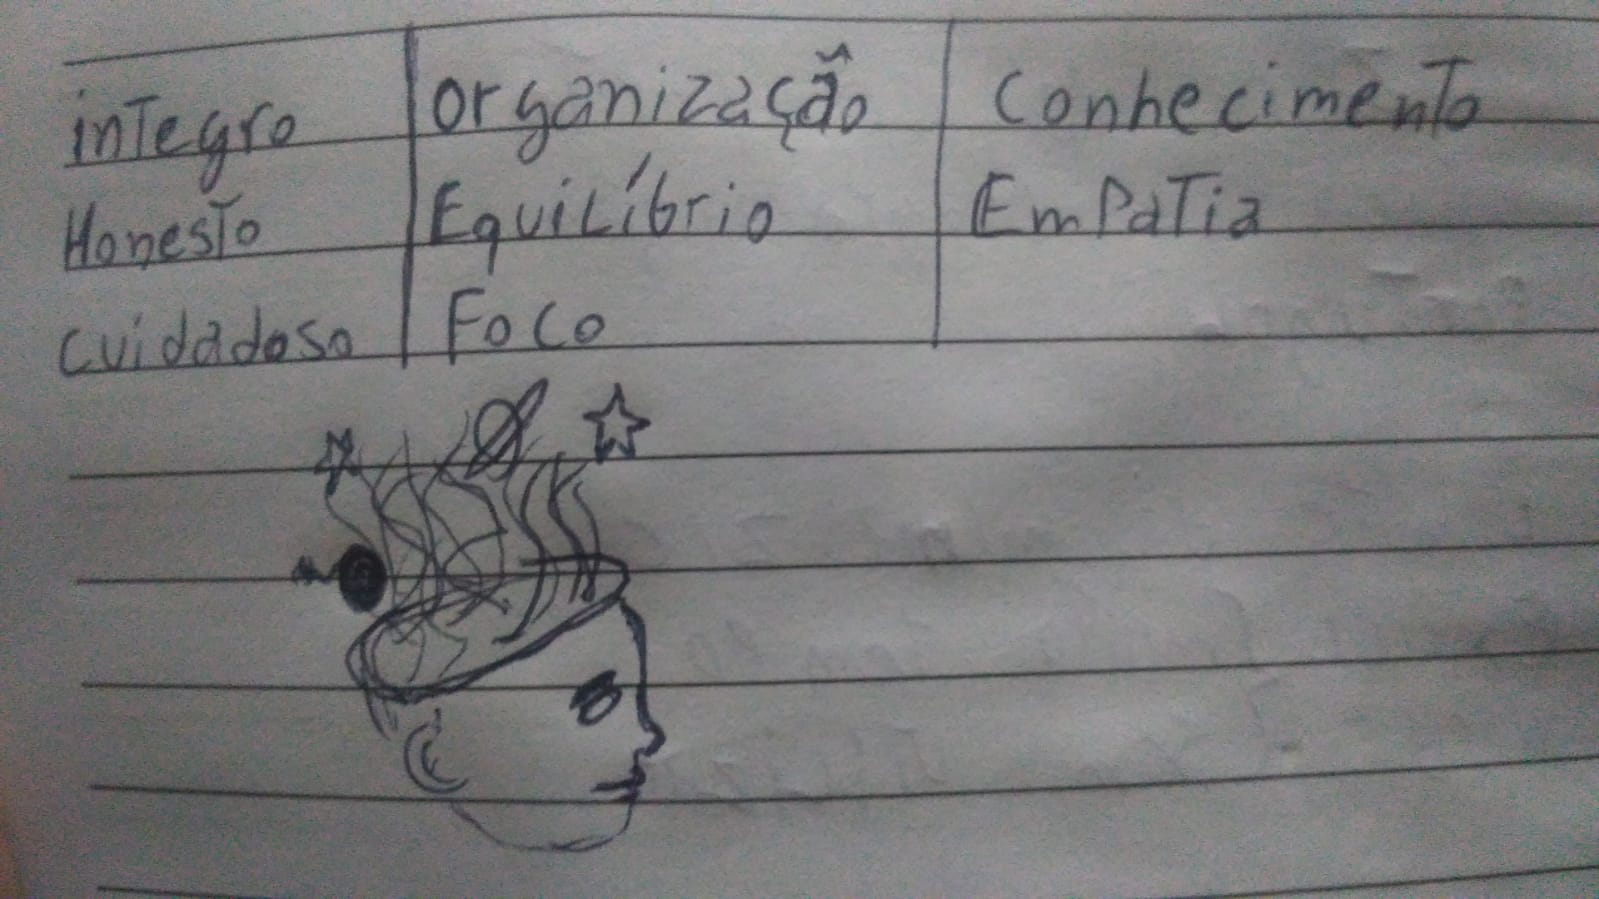 inTegro organização conhecimento
HonesTo EquiLíbrio EmPaTia
cuidadoso Foco